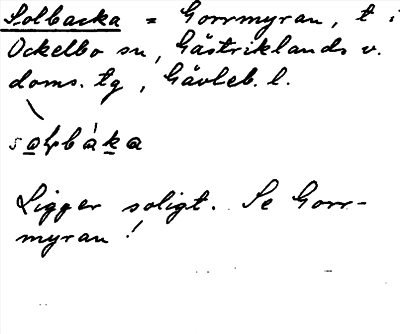 Solbacka = Gorrmyran, t i
Ockelbo sn, Gästriklands v.
doms. tg, Gävleb. l.
Ligger soligt. Se Gorr-
myran!